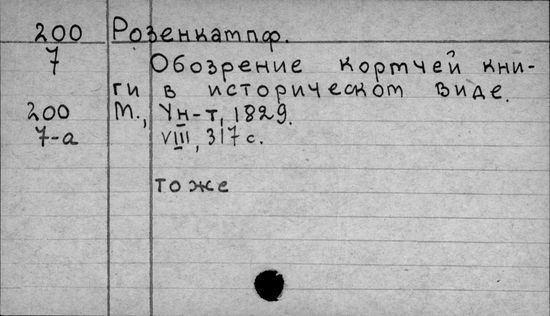 200 Розенкатпф.
7 Обозрение кортчей кни-
ги в историческот виде.
200 М., Ун-т, 1829.
7-а VIII, 317 с.
тоже